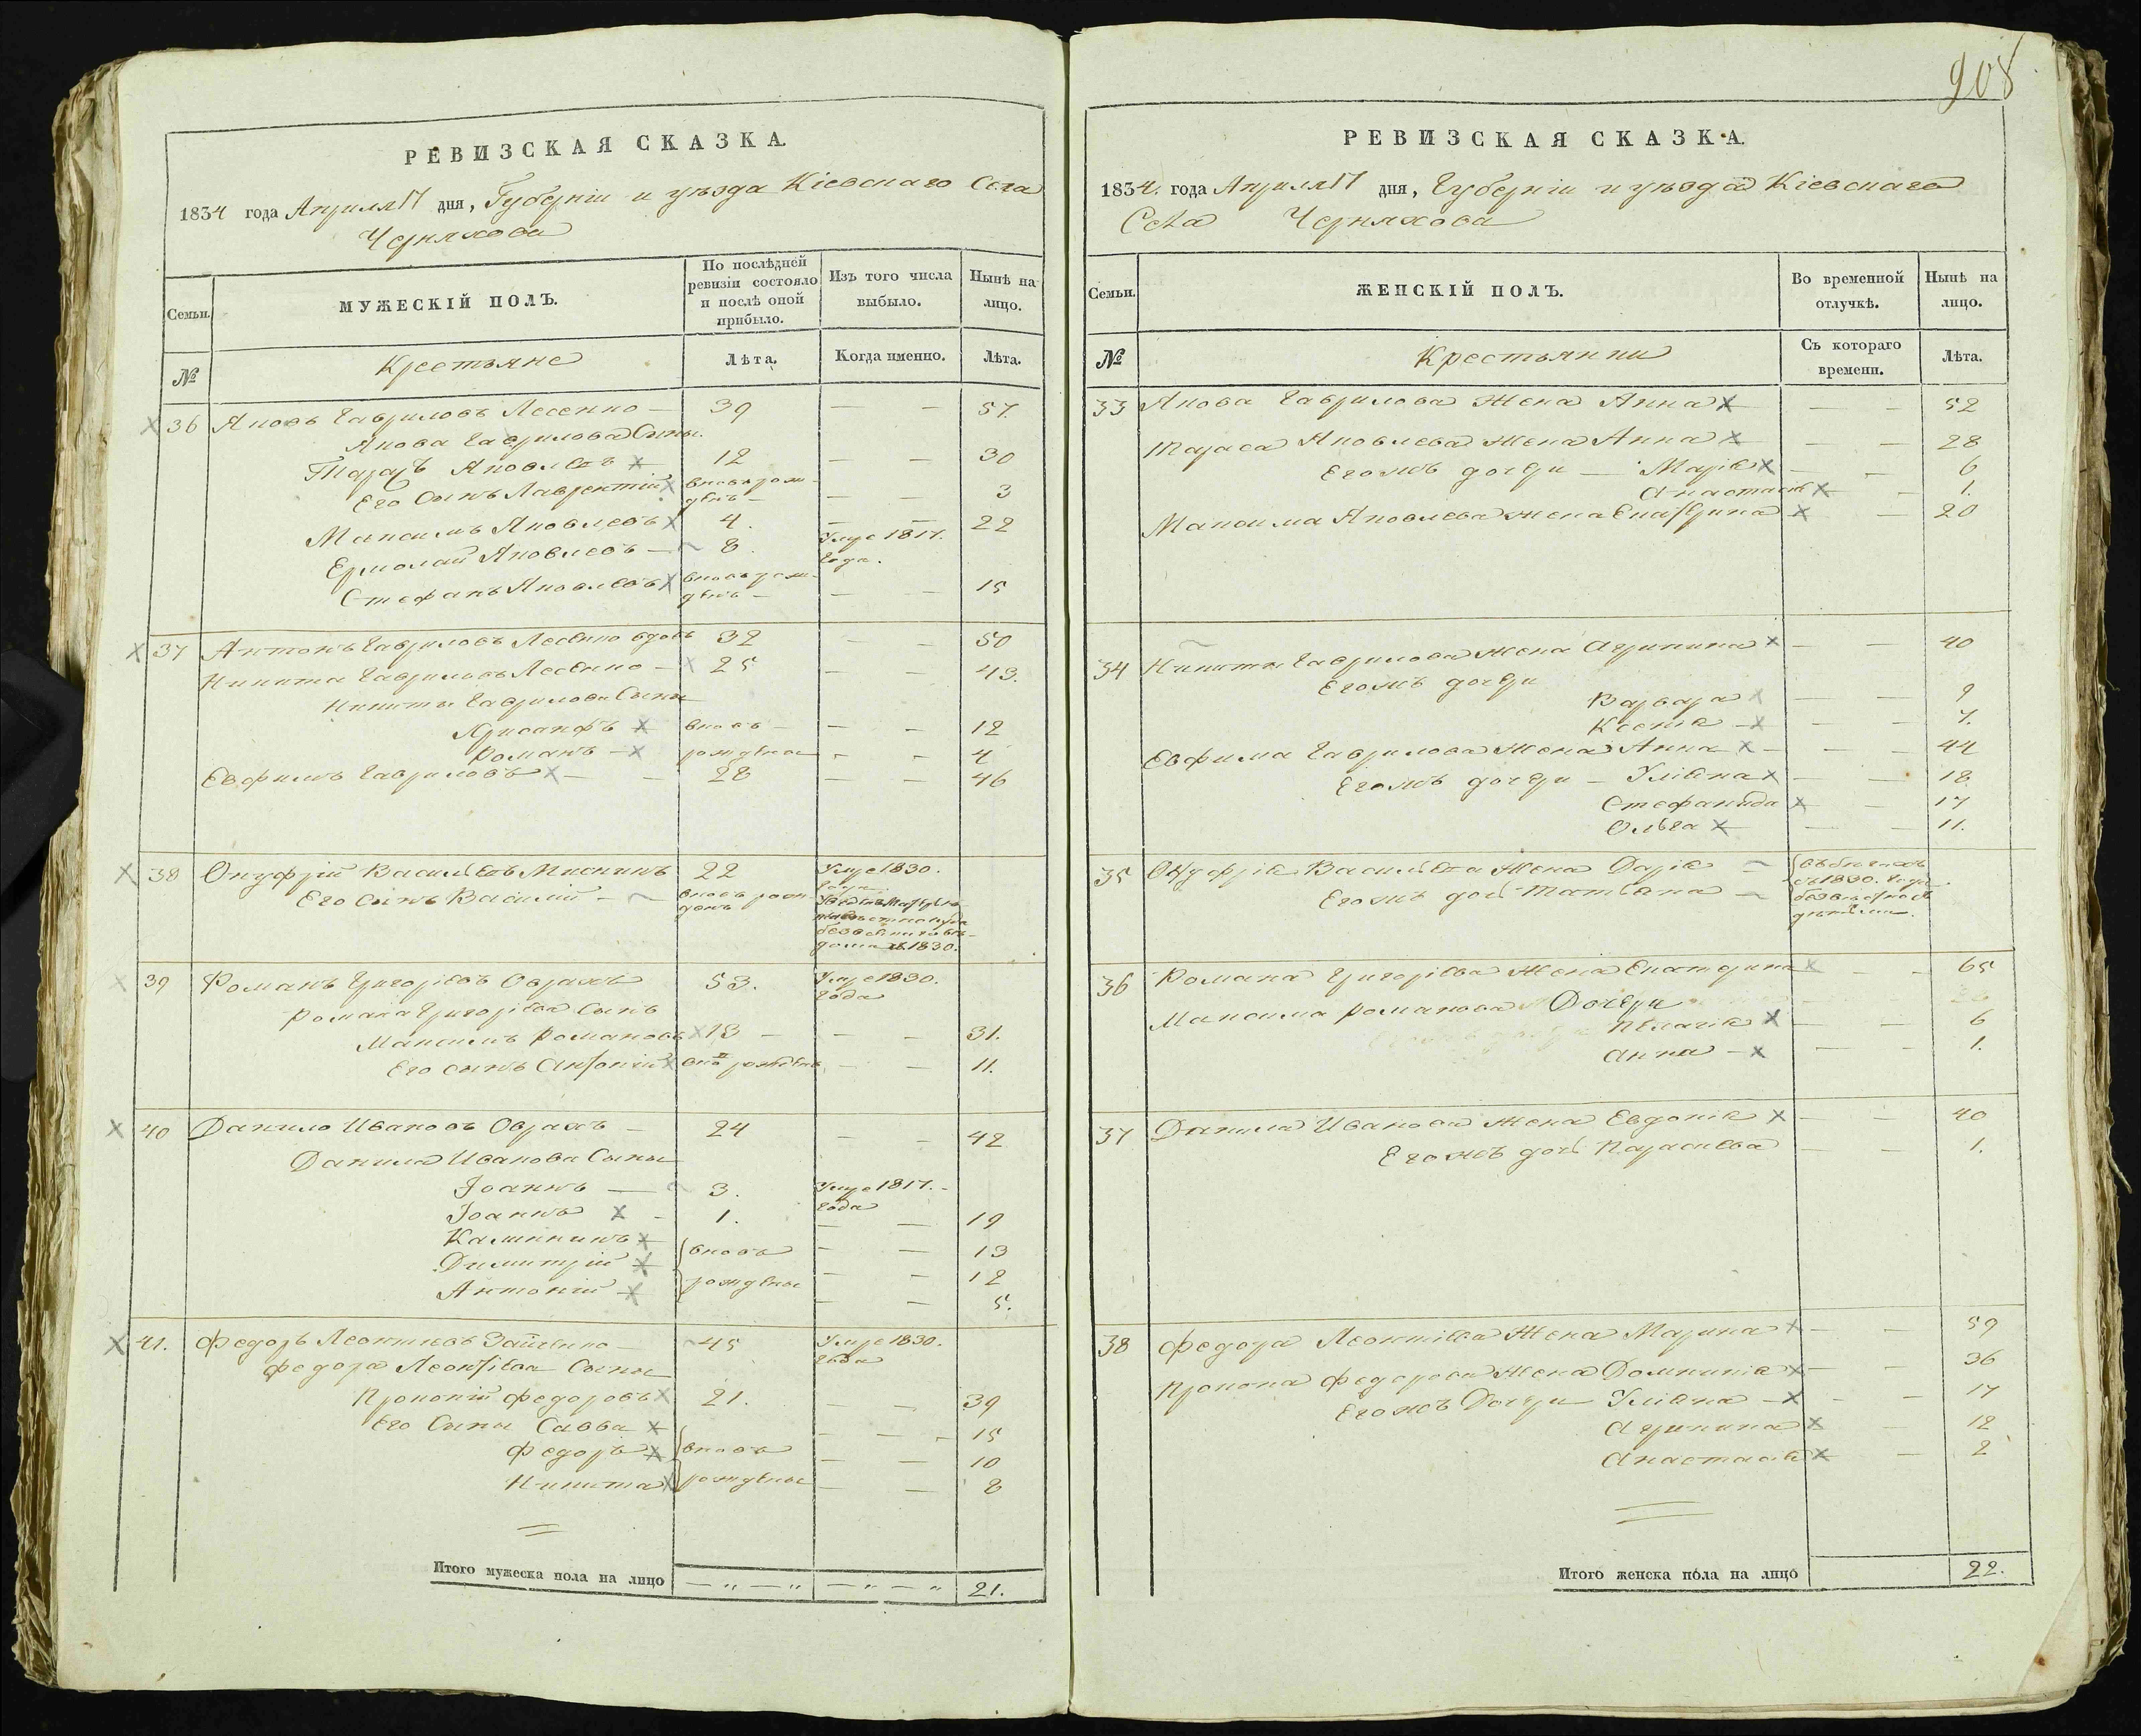 908
РЕВИЗСКАЯ СКАЗКА.
1834 года Апреля 17 дня, Губернiи и уѣзда Кiевскаго Села
Черняхова
Семьи. МУЖЕСКIЙ ПОЛЪ. По послѣдней ревизiи состояло и послѣ оной прибыло. Изъ того числа выбыло. Нынѣ на лицо.
№ Крестьяне Лѣта. Когда именно. Лѣта.
36 Яковъ Гавриловъ Лесенко — 39 — — 57.
Якова Гаврилова Сыны.
Тарасъ Яковлевъ 12 — — 30
Его Сынъ Лаврентiй вновь рожденъ — — — 3
Максимъ Яковлевъ 4. — — 22
Ермолай Яковлевъ — 8. Умре 1817. года.
Стефанъ Яковлевъ вновь рожденъ — — — 15
37 Антонъ Гавриловъ Лесенко вдовъ 32 — — 50
Никита Гавриловъ Лесенко — 25 — — 43.
Никиты Гаврилова Сыны
Хрисанфъ вновь — — — 12
Романъ — рожденые — — 4
Евфимъ Гавриловъ — — 28 — — 46
38 Онуфрiй Васильевъ 22 Умре 1830. года
Его Сынъ Василий — вновь рожденъ 1830.
39 Романъ Григорiевъ Оврахъ 53. Умре 1830. года
Романа Григорiева Сынъ
Максимъ Романовъ 13 — — — 31.
Его сынъ Антонiй рожденъ — — 11.
40 Данило Ивановъ Оврахъ — 24 — — 42
Данила Иванова Сыны
Iоаннъ — 3. Умре 1817. года
Iоаннъ — 1. — — 19
Калиникъ — — 13
Димитрiй вновь — — 12
Антонiй рожденые — — 5.
41. Федоръ Леонтiевъ Зайченко 45 Умре 1830. года
Федора Леонтiева Сыны
Прокопiй Федоровъ 21. — — 39
Его Сыны Савва — — — 15
Федоръ вновь — — 10
Никита рожденые — — 8
Итого мужеска пола на лицо — „ — „ — „ — „ 21.
РЕВИЗСКАЯ СКАЗКА.
1834. года Апреля 17 дня, Губернiи и уѣзда Кiевскаго
Села Черняхова
Семьи. ЖЕНСКIЙ ПОЛЪ. Во временной отлучкѣ. Нынѣ на лицо.
№ Крестьянки Съ котораго времени. Лѣта.
33 Якова Гаврилова Жена Анна — — 52
Тараса Яковлева жена Анна — — 28
Егожъ дочери — Марiя — — 6
Анастасiя — 1.
Максима Яковлева жена Екатерина — 20
34 Никиты Гаврилова жена Агрипина — — 40
Егожъ дочери
Варвара — — 9
Ксенiя — — — 7.
Евфима Гаврилова Жена Анна — — — 44
Егожъ дочери — Улiяна — — 18
Стефанида — 17
Ольга — — 11.
35 Онуфрiя Васильева Жена Дарiя
Егожъ дочь Татiяна —
36 Романа Григорiева Жена Екатерина — — 65
Максима Романова Дочери
Пелагiя — — 6
Анна — — — 1.
37 Данила Иванова жена Евдокiя — — 40
Егожъ дочь Параскева — — 1.
38 Федора Леонтiева Жена Марина — — 59
Прокопа Федорова Жена Домникiя — — 36
Егожъ Дочери Улiяна — — — 17
Агрипина — 12
Анастасiя — 2
Итого женска пола на лицо 22.